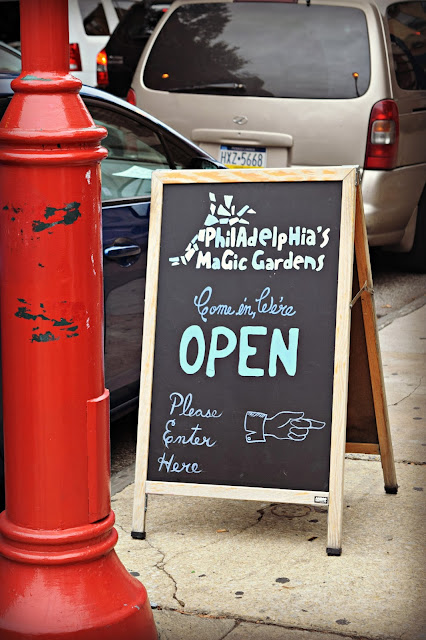 HXZ-5668
PHilAdelpHia's
MaGic Gardens
Come in, We're
OPEN
Please
Enter
Here